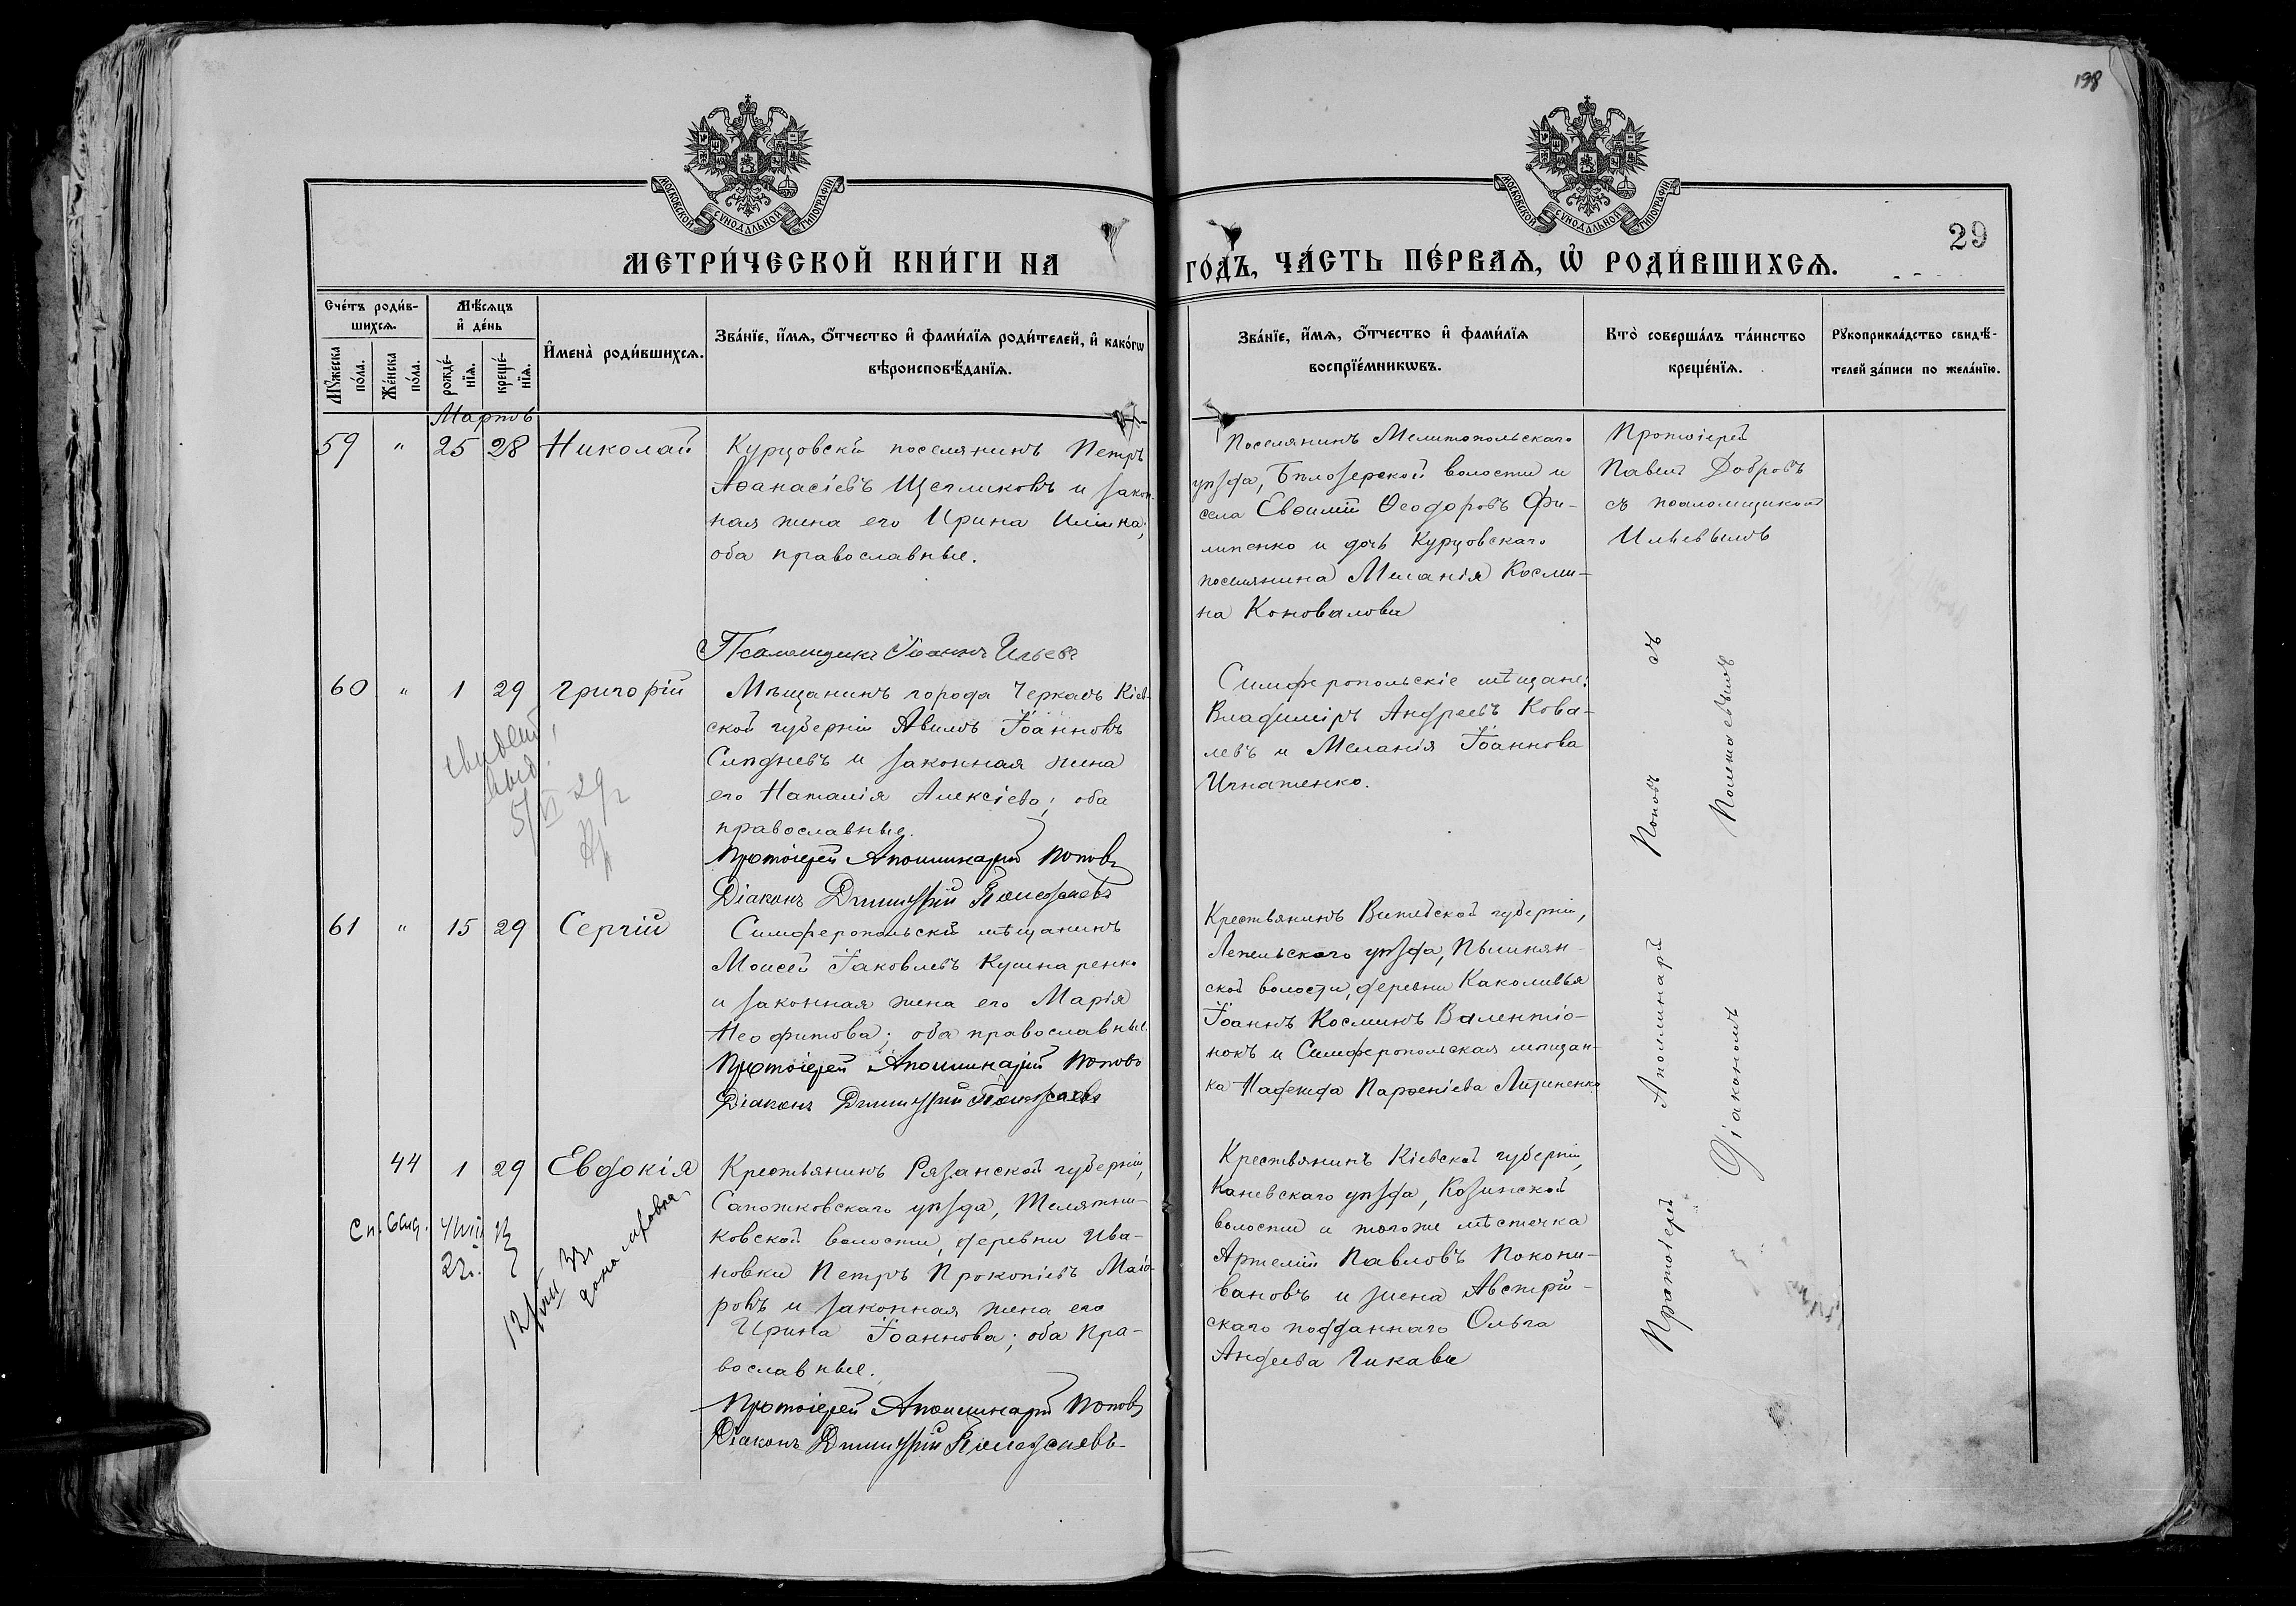 198
МОСКОВСКОЙ СѴНОДАЛЬНОЙ ТИПОГРАФІИ
МОСКОВСКОЙ СѴНОДАЛЬНОЙ ТИПОГРАФІИ
29
МЕТРИ́ЧЕСКОЙ КНИ́ГИ НА
ГО́ДЪ, ЧА́СТЬ ПЕ́РВАѦ, Ѡ҆ РОДИ́ВШИХСѦ.
Сче́тъ роди́в-
шихсѧ.
Мꙋ́жеска
по́ла.
Же́нска
по́ла.
Мѣ́сѧцъ
и҆ де́нь
рожде́-
нїѧ.
креще́-
нїѧ.
И҆мена̀ роди́вшихсѧ.
Зва́нїе, и҆́мѧ, ѻ҆́тчество и҆ фами́лїѧ роди́телей, и҆ како́гѡ
вѣроисповѣ́данїѧ.
Зва́нїе, и҆́мѧ, ѻ҆́тчество и҆ фами́лїѧ
воспрїе́мникѡвъ.
Кто̀ соверша́лъ та́инство
креще́нїѧ.
Рꙋкоприкла́дство свидѣ́-
телей за́писи по жела́нїю.
Мартъ
59 " 25 28 Николай
Курцовскій поселянинъ Петръ
Аѳанасіевъ Щегликовъ и закон-
ная жена его Ирина Иліина;
оба православные.
Поселянинъ Мелитопольскаго
уѣзда, Бѣлозерской волости и
села Евѳимій Ѳеодоровъ Фи-
липенко и дочь Курцовскаго
поселянина Меланія Косми-
на Коновалова
Протоіерей
Павелъ Добровъ
съ псаломщикомъ
Ильевымъ
Псаломщикъ Іоаннъ Ильевъ
60 " 1 29 Григорій
Мѣщанинъ города Черкасъ Кіев-
ской губерніи Авимъ Іоанновъ
Слѣдневъ и законная жена
его Наталія Алексіева; оба
православные.
Протоіерей Аполлинарій Поповъ
Діаконъ Димитрій
Симферопольскіе мѣщане:
Владиміръ Андреевъ Кова-
левъ и Меланія Іоаннова
Игнатенко.
5/VI 29 г
61 " 15 29 Сергій
Симферопольскій мѣщанинъ
Моисей Іаковлевъ Кушнаренко
и законная жена его Марія
Неофитова; оба православные.
Протоіерей Аполлинарій Поповъ
Діаконъ Димитрій
Крестьянинъ Витебской губерніи,
Лепельскаго уѣзда, Пышнян-
ской волости, деревни Каколивья
Іоаннъ Косминъ Валентіо-
нокъ и Симферопольская мѣщан-
ка Надежда Парѳеніева Литриненко
44 1 29 Евдокія
Крестьянинъ Рязанской губерніи,
Сапожковскаго уѣзда, Телятни-
ковской волости, деревни Ива-
новки Петръ Прокопіевъ Маіо-
ровъ и законная жена его
Ирина Іоаннова; оба пра-
вославные.
Протоіерей Аполлинарій Поповъ
Діаконъ Димитрій
Крестьянинъ Кіевской губерніи,
Каневскаго уѣзда, Козинской
волости и тогоже мѣстечка
Артемій Павловъ Покони-
вановъ и жена Австрій-
скаго подданнаго Ольга
Андреева Чикава
Протоіерей Аполлинарій Поповъ съ
Діакономъ